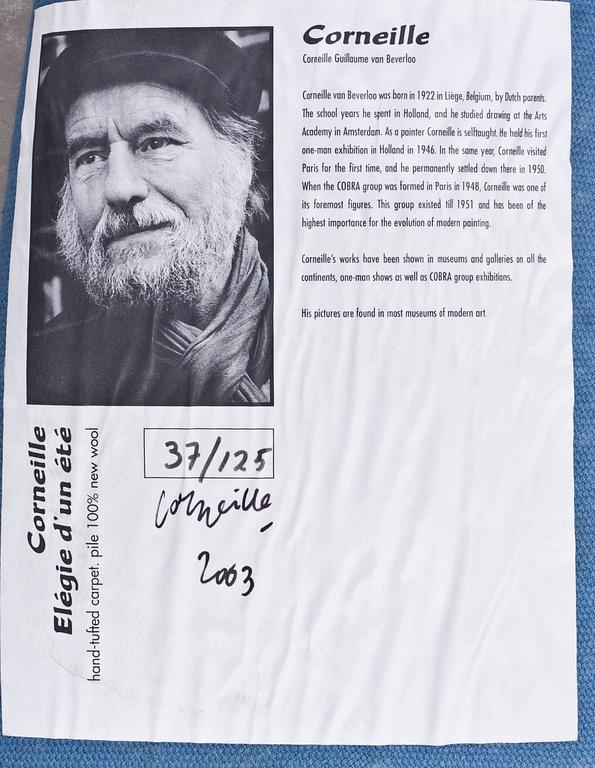 Corneille
Corneille Guillaume van Beverloo
Corneille van Beverloo was born in 1922 in Liège, Belgium, by Dutch parents.
The school years he spent in Holland, and he studied drawing at the Arts
Academy in Amsterdam. As a painter Corneille is selftaught. He held his first
one-man exhibition in Holland in 1946. In the same year, Corneille visited
Paris for the first time, and he permanently settled down there in 1950.
When the COBRA group was formed in Paris in 1948, Corneille was one of
its foremost figures. This group existed till 1951 and has been of the
highest importance for the evolution of modern painting.
Corneille's works have been shown in museums and galleries on all the
continents, one-man shows as well as COBRA group exhibitions.
His pictures are found in most museums of modern art.
Corneille
Elégie d'un été
hand-tufted carpet. pile 100% new wool
37/125
Corneille
2003